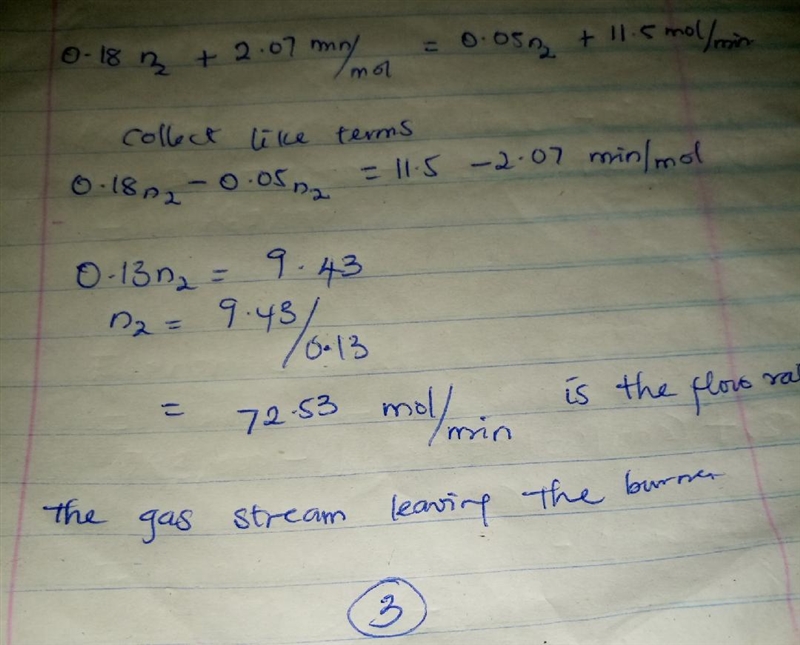 0.18 n₂ + 2.07 mn/mol = 0.05n₂ + 11.5 mol/min
Collect like terms
0.18n₂ - 0.05n₂ = 11.5 - 2.07 min/mol
0.13n₂ = 9.43
n₂ = 9.43/0.13
= 72.53 mol/min is the flow
the gas stream leaving the burner
3